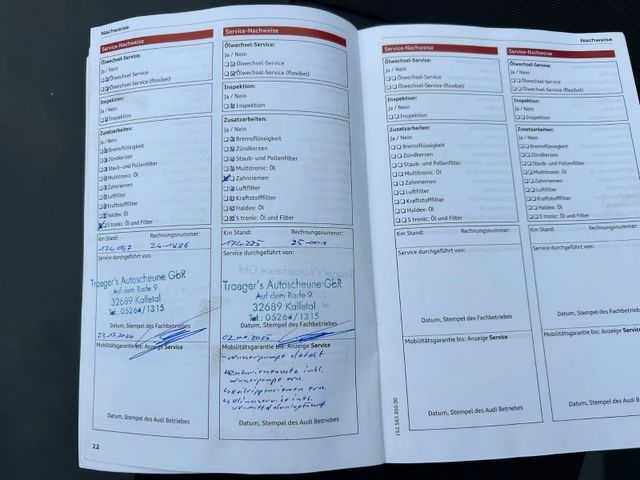 Nachweise
Service-Nachweise
Ölwechsel-Service:
Ja / Nein
Ölwechsel-Service
Ölwechsel-Service (flexibel)
Inspektion:
Ja / Nein
Inspektion
Zusatzarbeiten:
Ja / Nein
Bremsflüssigkeit
Zündkerzen
Staub- und Pollenfilter
Multitronic: Öl
Zahnriemen
Luftfilter
Kraftstofffilter
Haldex: Öl
S tronic: Öl und Filter
Km Stand: Rechnungsnummer:
Service durchgeführt von:
Traeger's Autoscheune GbR
Auf dem Rade 9
32689 Kalletal
Tel.: 05264/1315
Datum, Stempel des Fachbetriebes
23.12.2024
Mobilitätsgarantie bis: Anzeige Service
Datum, Stempel des Audi Betriebes
22
Service-Nachweise
Ölwechsel-Service:
Ja / Nein
Ölwechsel-Service
Ölwechsel-Service (flexibel)
Inspektion:
Ja / Nein
Inspektion
Zusatzarbeiten:
Ja / Nein
Bremsflüssigkeit
Zündkerzen
Staub- und Pollenfilter
Multitronic: Öl
Zahnriemen
Luftfilter
Kraftstofffilter
Haldex: Öl
S tronic: Öl und Filter
Km Stand: Rechnungsnummer:
174.225
Service durchgeführt von:
Traeger's Autoscheune GbR
Auf dem Rade 9
32689 Kalletal
Tel.: 05264/1315
Datum, Stempel des Fachbetriebes
02.01.2025
Mobilitätsgarantie bis: Anzeige Service
Datum, Stempel des Audi Betriebes
Nachweise
Service-Nachweise
Ölwechsel-Service:
Ja / Nein
Ölwechsel-Service
Ölwechsel-Service (flexibel)
Inspektion:
Ja / Nein
Inspektion
Zusatzarbeiten:
Ja / Nein
Bremsflüssigkeit
Zündkerzen
Staub- und Pollenfilter
Multitronic: Öl
Zahnriemen
Luftfilter
Kraftstofffilter
Haldex: Öl
S tronic: Öl und Filter
Km Stand: Rechnungsnummer:
Service durchgeführt von:
Datum, Stempel des Fachbetriebes
Mobilitätsgarantie bis: Anzeige Service
Datum, Stempel des Audi Betriebes
152.563.850.00
Service-Nachweise
Ölwechsel-Service:
Ja / Nein
Ölwechsel-Service
Ölwechsel-Service (flexibel)
Inspektion:
Ja / Nein
Inspektion
Zusatzarbeiten:
Ja / Nein
Bremsflüssigkeit
Zündkerzen
Staub- und Pollenfilter
Multitronic: Öl
Zahnriemen
Luftfilter
Kraftstofffilter
Haldex: Öl
S tronic: Öl und Filter
Km Stand: Rechnungsnummer:
Service durchgeführt von:
Datum, Stempel des Fachbetriebes
Mobilitätsgarantie bis: Anzeige Service
Datum, Stempel des Audi Betriebes